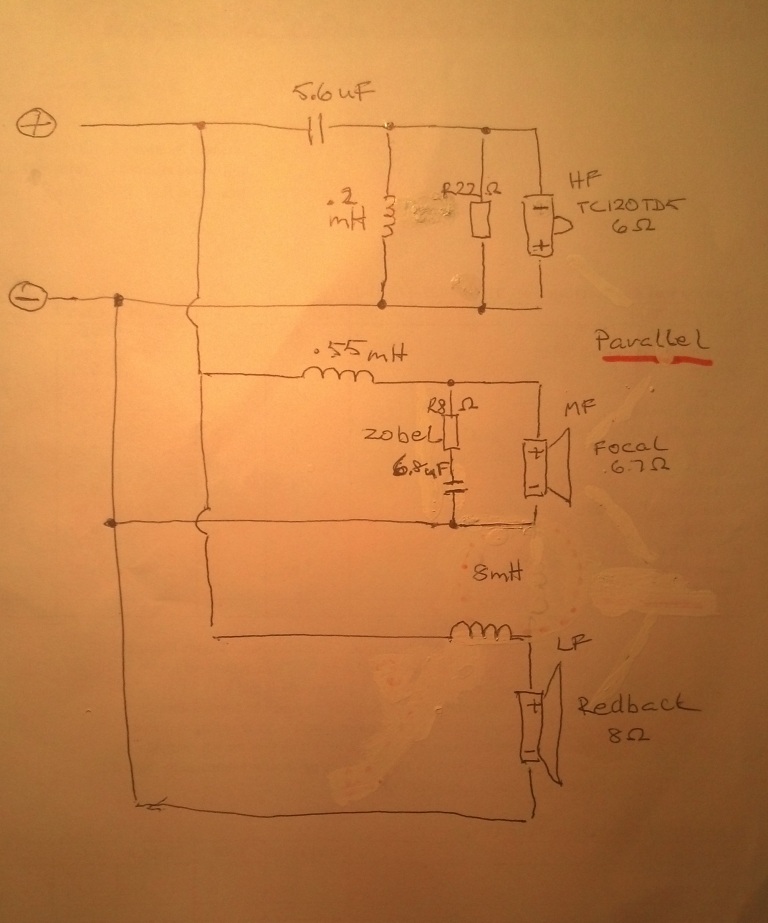 5.6uF
+
.2
mH
R22 Ω
HF
TC120TD5
6Ω
−
+
−
.55mH
Parallel
R8 Ω
zobel
6.8uF
MF
Focal
6.7Ω
+
−
8mH
LF
Redback
8Ω
+
−